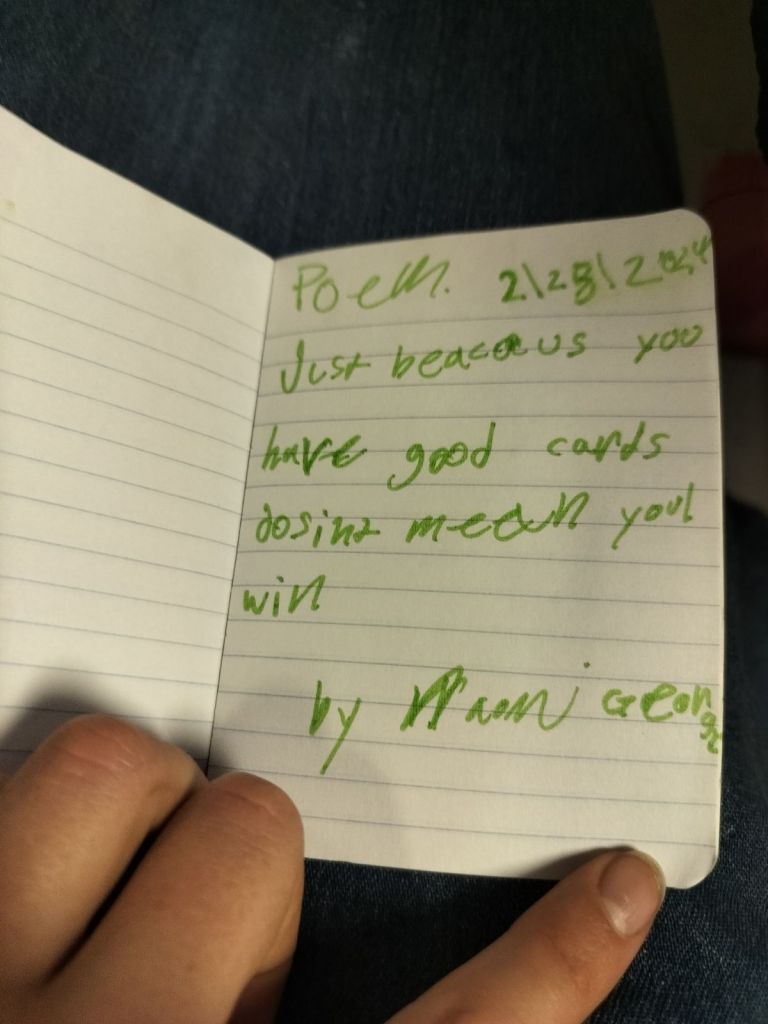 Poem. 2\28\2024
Just beacaus you
have good cards
dosint mean youl
win
by George